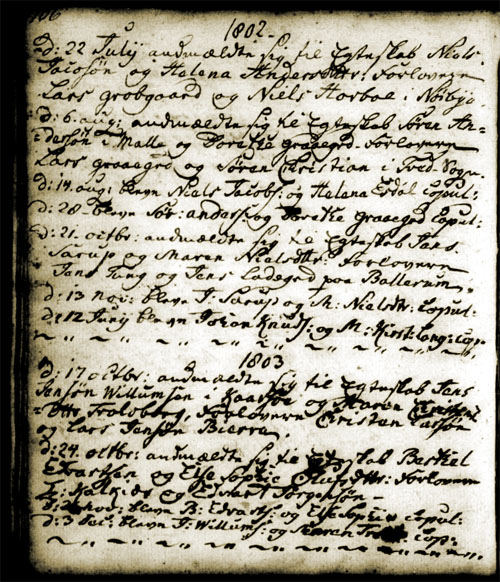 1802
d: 22 July anmældte sig til Egteskab Niels
Jacobsøn og Helena Andersdttr: Forlovere
Lars Grobgaard og Niels Horboe i Nøibye
d: 6 aug: anmældte sig til Egteskab Søren An-
dersøn i Malle og Dorethe Graagrd Forlovere
Lars Graagrd og Søren Christian i Sogn
d: 14 aug: blevn Niels Jacobs: og Helena copul:
d: 28 blevn Sør: anders: og Dorethe Graagrd Copul:
d: 21 octbr: anmældte sig til Egteskab Jens
Sarup og Maren Nielsdttr: Forlovere
Jens Jung og Jens Ladegrd paa Ballerum
d: 13 Nov: blevn J: Sarup og M: Nielsdtr: Copul:
d: 12 Juny blevn Johan Knuds: og M: Kirst: Long: cop:
1803
d: 17 octbr: anmældte sig til Egteskab Jens
Jensøn Willumsen i Kaastre og Maren
Forlovere Christen Larsøn
og Lars Jensøn Bierre
d: 24 octbr: anmældte sig til Egteskab Berthel
Edvartsøn og Else Sophie Olufsdttr: Forlovere
og Edvart Jørgensøn
blevn B: Edvarts: og Else Sophie Copul:
d: 3 Dec: blevn J: Willums: og Maren cop: